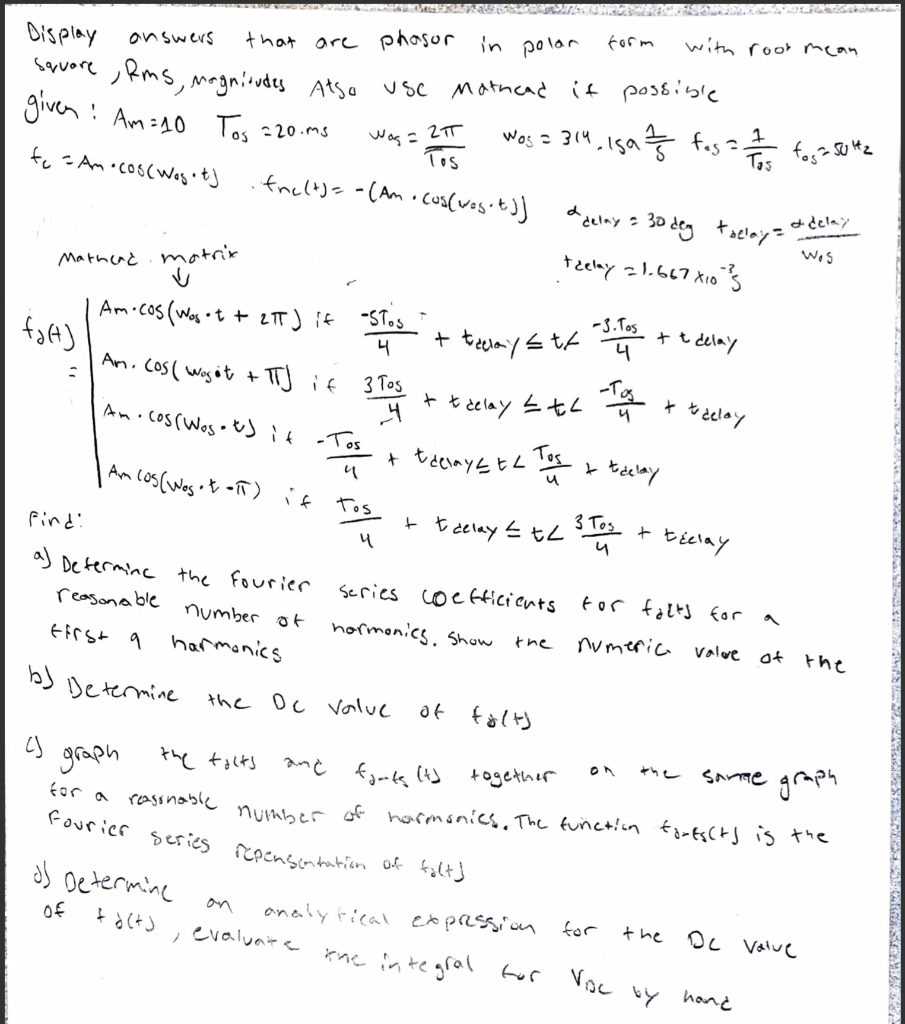 Display answers that are phasor in polar form with root mean
square, Rms, magnitudes Also use Mathcad if possible
given: Am=10 Tos=20.ms Wos = 2π/Tos Wos = 314.159 1/s fos = 1/Tos fos=50Hz
fc = Am.cos(Wos.t) . fnc(t) = -(Am.cos(wos.t))
αdelay = 30 deg tdelay = αdelay/Wos
tdelay = 1.667 x10^-3 s
Mathcad matrix
↓
fd(t) = | Am.cos(Wos.t + 2π) if -5Tos/4 + tdelay ≤ t< -3.Tos/4 + tdelay
Am. cos(wos.t + π) if 3Tos/4 + tdelay ≤ t< -Tos/4 + tdelay
Am.cos(Wos.t) if -Tos/4 + tdelay ≤ t < Tos/4 + tdelay
Am cos(Wos.t-π) if Tos/4 + tdelay ≤ t< 3Tos/4 + tdelay
Find:
a) Determine the Fourier series coefficients for fd(t) for a
reasonable number of harmonics. Show the numeric value of the
first 9 harmonics
b) Determine the Dc value of fd(t)
c) graph the fd(t) and fd-fs(t) together on the same graph
for a reasonable number of harmonics. The function fd-fs(t) is the
Fourier series repensentation of fd(t)
d) Determine an analytical expression for the Dc value
of fd(t), evaluate the integral for VDC by hand